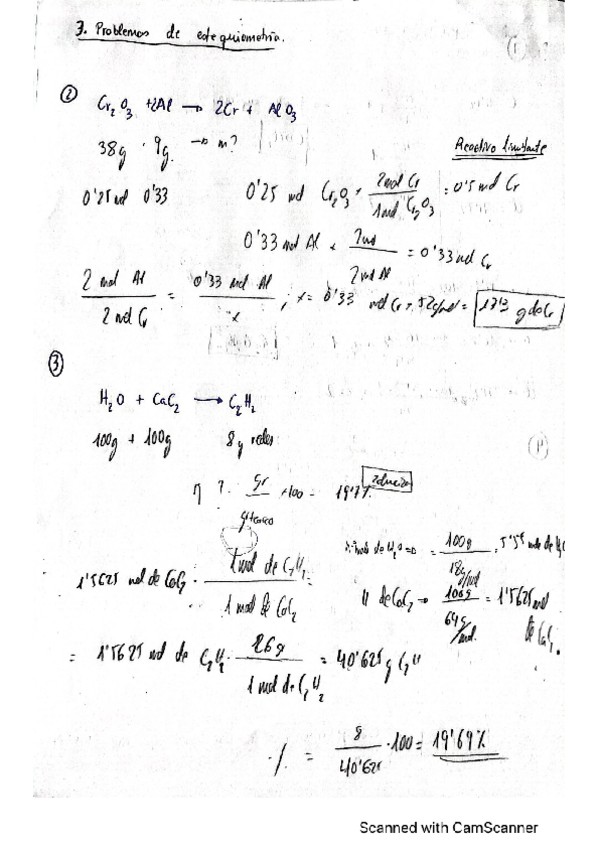 3. Problemas de estequiometría.
②
Cr₂O₃ + 2Al → 2Cr + AlO₃
38g · 9g. → m?
Reactivo limitante
0'25 mol 0'33
0'25 mol Cr₂O₃ · 2mol Cr / 1mol Cr₂O₃ = 0'5 mol Cr
0'33 mol Al · 2mol / 2mol Al = 0'33 mol Cr
2 mol Al / 2 mol Cr = 0'33 mol Al / x ; x = 0'33 mol Cr · 52g/mol = 17'3 g de Cr
③
H₂O + CaC₂ → C₂H₂
100g + 100g 8g reales
η ? gr / g teórico · 100 = 19'7%
Solución
mols de H₂O = 100g / 18g/mol = 5'55 mols de
1'5625 mol de CaC₂ · 1 mol de C₂H₂ / 1 mol de CaC₂ =
" de CaC₂ → 100g / 64g/mol = 1'5625 mol de CaC₂.
= 1'5625 mol de C₂H₂ · 26g / 1 mol de C₂H₂ = 40'625 g C₂H
% = 8 / 40'625 · 100 = 19'69%
Scanned with CamScanner